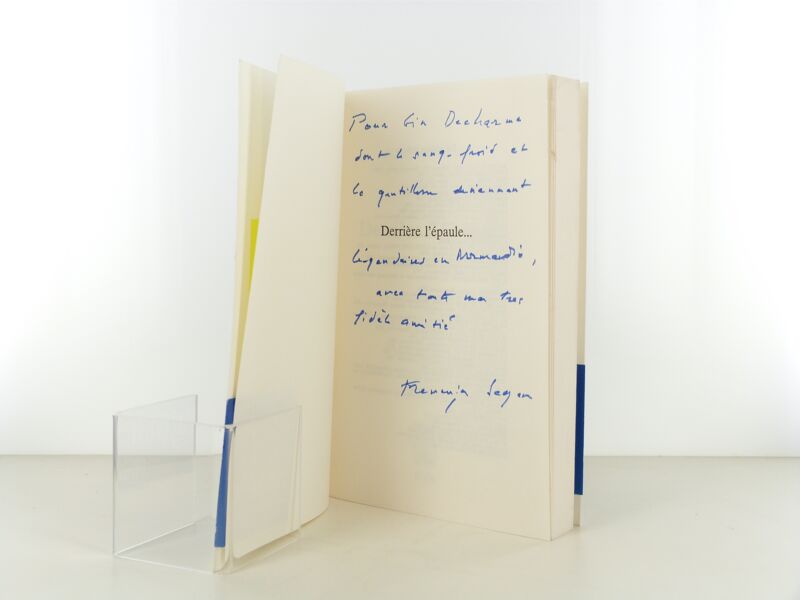 Pour Decharme
dont le sang-froid et
la gentillesse deviennent
Derrière l'épaule...
légendaires en Normandie,
avec toute ma très
fidèle amitié
Françoise Sagan